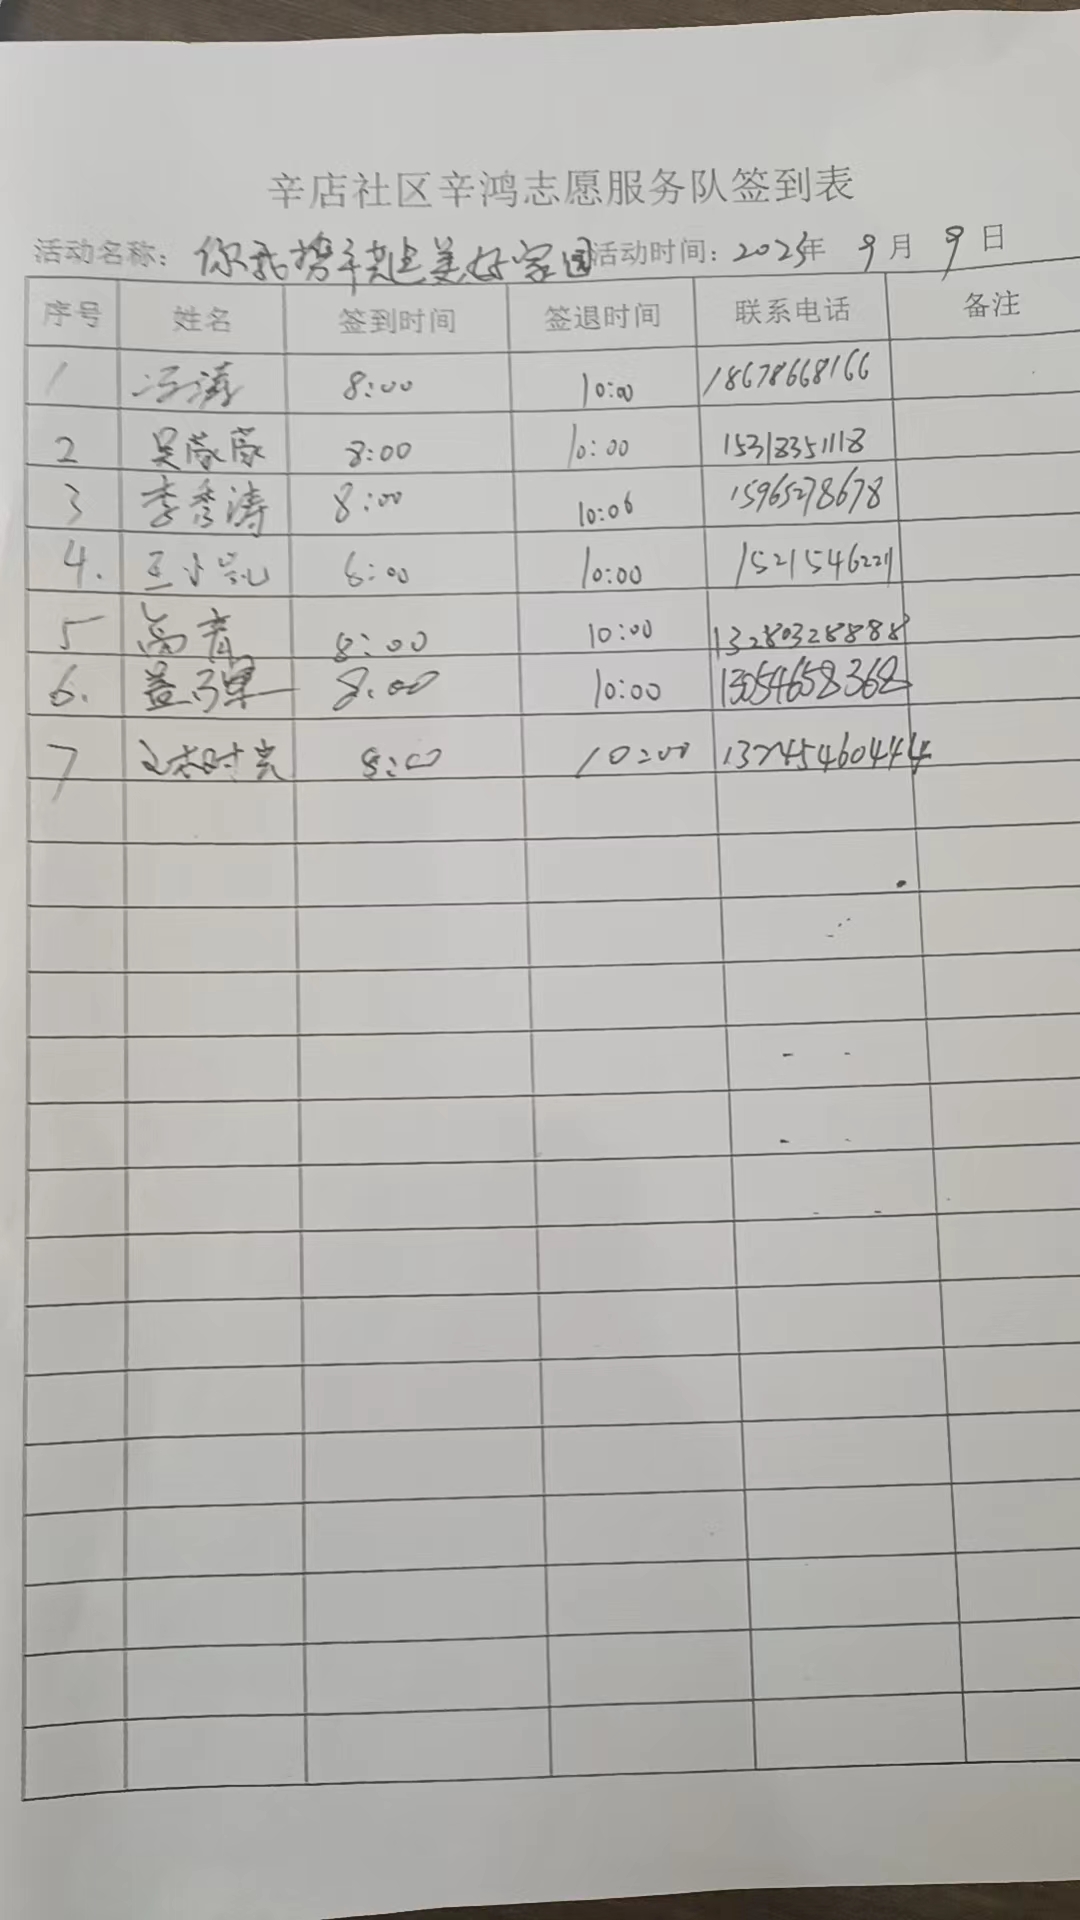 辛店社区辛鸿志愿服务队签到表
活动名称：你我携手共建美好家园 活动时间：2023年 9月 9日
序号 姓名 签到时间 签退时间 联系电话 备注
1 冯涛 8:00 10:00 18678668166
2 吴蒙蒙 8:00 10:00 15318351118
3 李秀涛 8:00 10:00 15965278678
4. 王小 8:00 10:00 15215462211
5 尚青 8:00 10:00 13280328888
6. 8:00 10:00 13054658368
7 时光 8:00 10:00